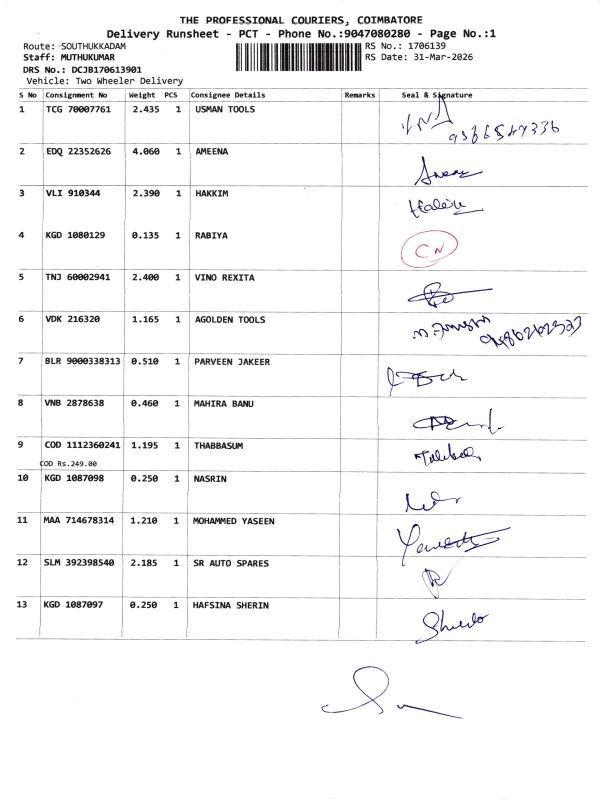 THE PROFESSIONAL COURIERS, COIMBATORE
Delivery Runsheet - PCT - Phone No.:9047080280 - Page No.:1
Route: SOUTHUKKADAM RS No.: 1706139
Staff: MUTHUKUMAR RS Date: 31-Mar-2026
DRS No.: DCJB170613901
Vehicle: Two Wheeler Delivery
S No Consignment No Weight PCS Consignee Details Remarks Seal & Signature
1 TCG 70007761 2.435 1 USMAN TOOLS
2 EDQ 22352626 4.060 1 AMEENA
3 VLI 910344 2.390 1 HAKKIM
4 KGD 1080129 0.135 1 RABIYA CN
5 TNJ 60002941 2.400 1 VINO REXITA
6 VDK 216320 1.165 1 AGOLDEN TOOLS
7 BLR 9000338313 0.510 1 PARVEEN JAKEER
8 VNB 2878638 0.460 1 MAHIRA BANU
9 COD 1112360241 1.195 1 THABBASUM
COD Rs.249.00
10 KGD 1087098 0.250 1 NASRIN
11 MAA 714678314 1.210 1 MOHAMMED YASEEN
12 SLM 392398540 2.185 1 SR AUTO SPARES
13 KGD 1087097 0.250 1 HAFSINA SHERIN